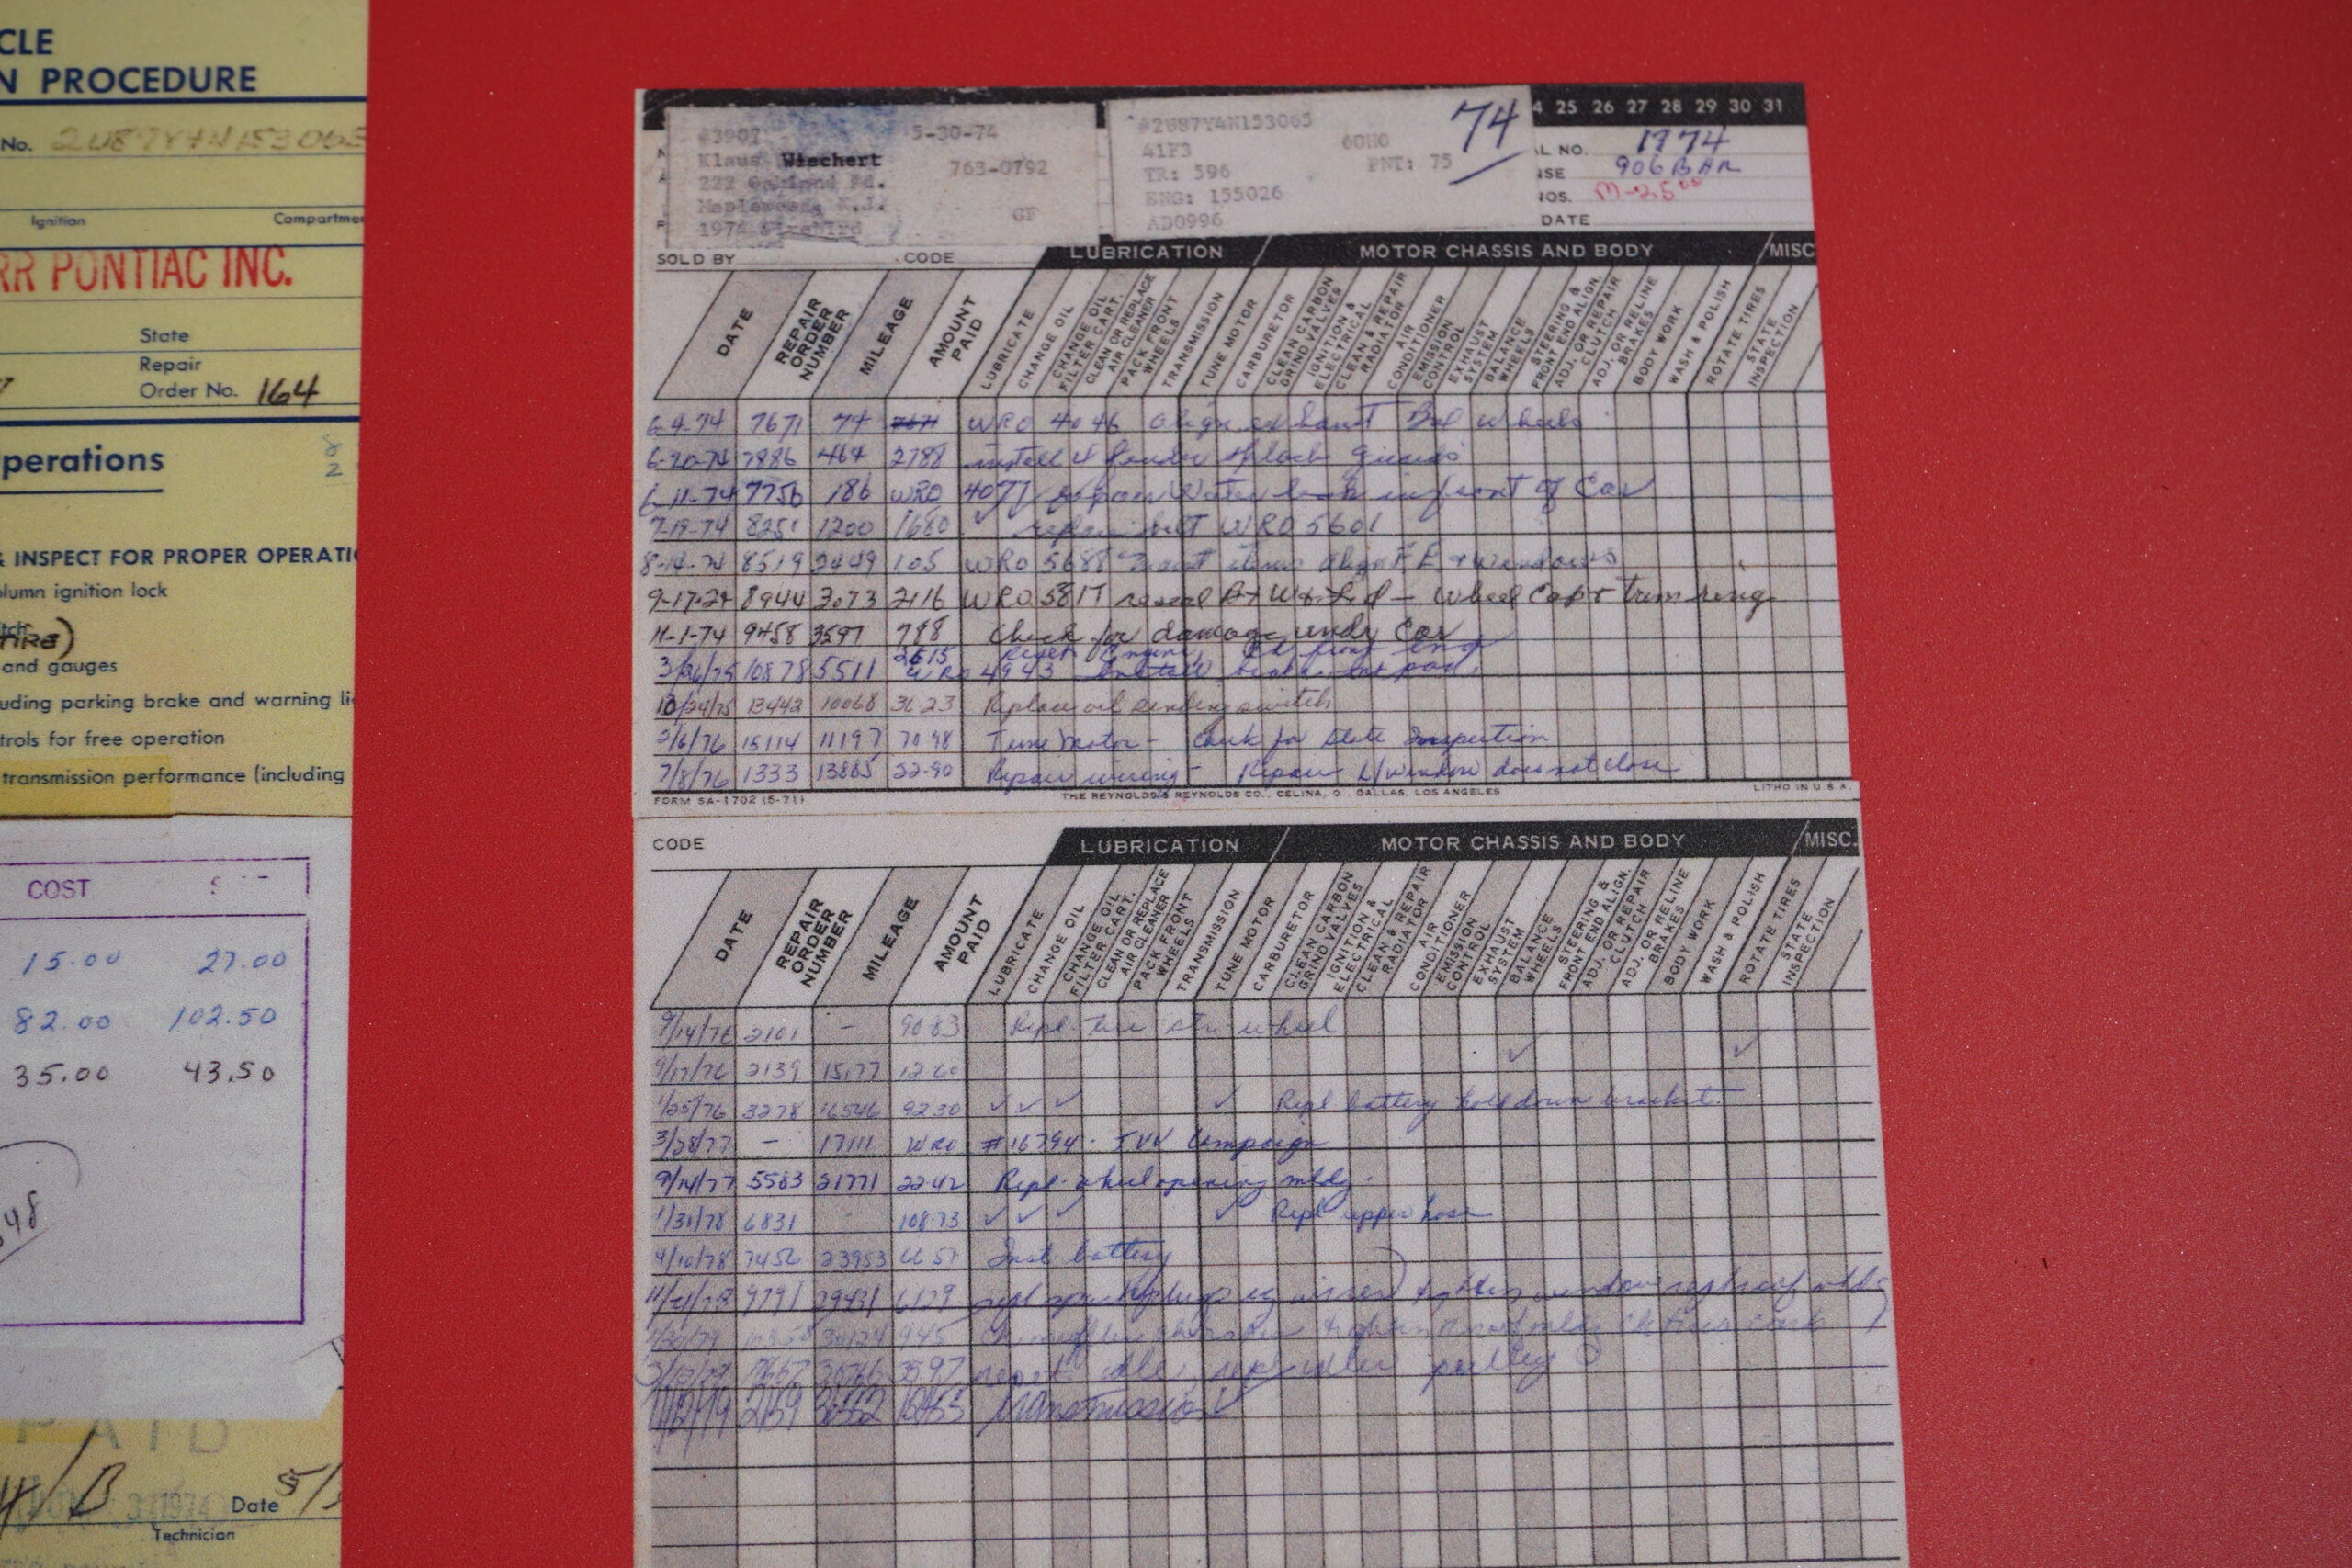 CLE
N PROCEDURE
No. 2U87Y4N153065
Ignition Compartme
RR PONTIAC INC.
State
Repair
Order No. 164
perations
8
2
& INSPECT FOR PROPER OPERATI
lumn ignition lock
and gauges
uding parking brake and warning li
trols for free operation
transmission performance (including
COST
15.00 27.00
82.00 102.50
35.00 43.50
PAID
Date 5/
Technician
4 25 26 27 28 29 30 31
#3907 5-30-74
Klaus Wiechert
763-0792
222 Rd.
Maplewood, N.J.
1974 Firebird GF
#2U87Y4N153065
41F3 60HO
TR: 596 PNT: 75
ENG: 155026
AD0996
74
L NO. 1774
NSE 906 BAR
NOS. M-25
DATE
SOLD BY CODE LUBRICATION MOTOR CHASSIS AND BODY MISC
DATE REPAIR ORDER NUMBER MILEAGE AMOUNT PAID LUBRICATE CHANGE OIL CHANGE OIL FILTER CART. CLEAN OR REPLACE AIR CLEANER PACK FRONT WHEELS TRANSMISSION TUNE MOTOR CARBURETOR CLEAN CARBON GRIND VALVES IGNITION & ELECTRICAL CLEAN & REPAIR RADIATOR AIR CONDITIONER EMISSION CONTROL EXHAUST SYSTEM BALANCE WHEELS STEERING & FRONT END ALIGN. ADJ. OR REPAIR CLUTCH ADJ. OR RELINE BRAKES BODY WORK WASH & POLISH ROTATE TIRES STATE INSPECTION
6-4-74 7671 74 7671 WRO 4046 align exhaust Bal wheels
6-20-74 7886 464 2788 install 4 fender splash guards
6-11-74 7756 186 WRO 4077 repair Water leak in front of Car
7-19-74 8251 1200 1680 repair belt WRO 5601
8-14-74 8519 2449 105 WRO 5688 align F E + windows
9-17-74 8944 3073 2116 WRO 5817 reseal wheel caps + trim rings
11-1-74 9458 3597 788 Check for damage undr Car
3/26/75 10878 5511 2615 Reset Engine, front end
WRO 4943 Install
10/24/75 13442 10068 31-23 Replace oil sending switch
2/6/76 15114 11197 70 98 Tune Motor - check for State Inspection
7/8/76 1333 13885 22-90 Repair wiring - Repair L/window does not close
FORM SA-1702 (5-71) THE REYNOLDS & REYNOLDS CO., CELINA, O., DALLAS, LOS ANGELES LITHO IN U.S.A.
CODE LUBRICATION MOTOR CHASSIS AND BODY MISC.
DATE REPAIR ORDER NUMBER MILEAGE AMOUNT PAID LUBRICATE CHANGE OIL CHANGE OIL FILTER CART. CLEAN OR REPLACE AIR CLEANER PACK FRONT WHEELS TRANSMISSION TUNE MOTOR CARBURETOR CLEAN CARBON GRIND VALVES IGNITION & ELECTRICAL CLEAN & REPAIR RADIATOR AIR CONDITIONER EMISSION CONTROL EXHAUST SYSTEM BALANCE WHEELS STEERING & FRONT END ALIGN. ADJ. OR REPAIR CLUTCH ADJ. OR RELINE BRAKES BODY WORK WASH & POLISH ROTATE TIRES STATE INSPECTION
9/14/76 2101 - 90 83 Repl. tire str. wheel
9/17/76 2139 15177 12 60 ✓ ✓
1/25/76 3278 16546 92 30 ✓ ✓ ✓ ✓ Repl battery hold down bracket
3/28/77 - 17111 WRO #16794 - Campaign
9/14/77 5583 21771 22 42 Repl. wheel opening mldg.
1/31/78 6831 - 108 73 ✓ ✓ ✓ ✓ Repl upper hose
4/10/78 7456 23953 66 57 Inst battery
11/21/78 9791 29431 6179 repl spark plug tighten window
30124 945
30766 3597 reset idle, repl idler pulley
11/12/79 2159 transmission ✓